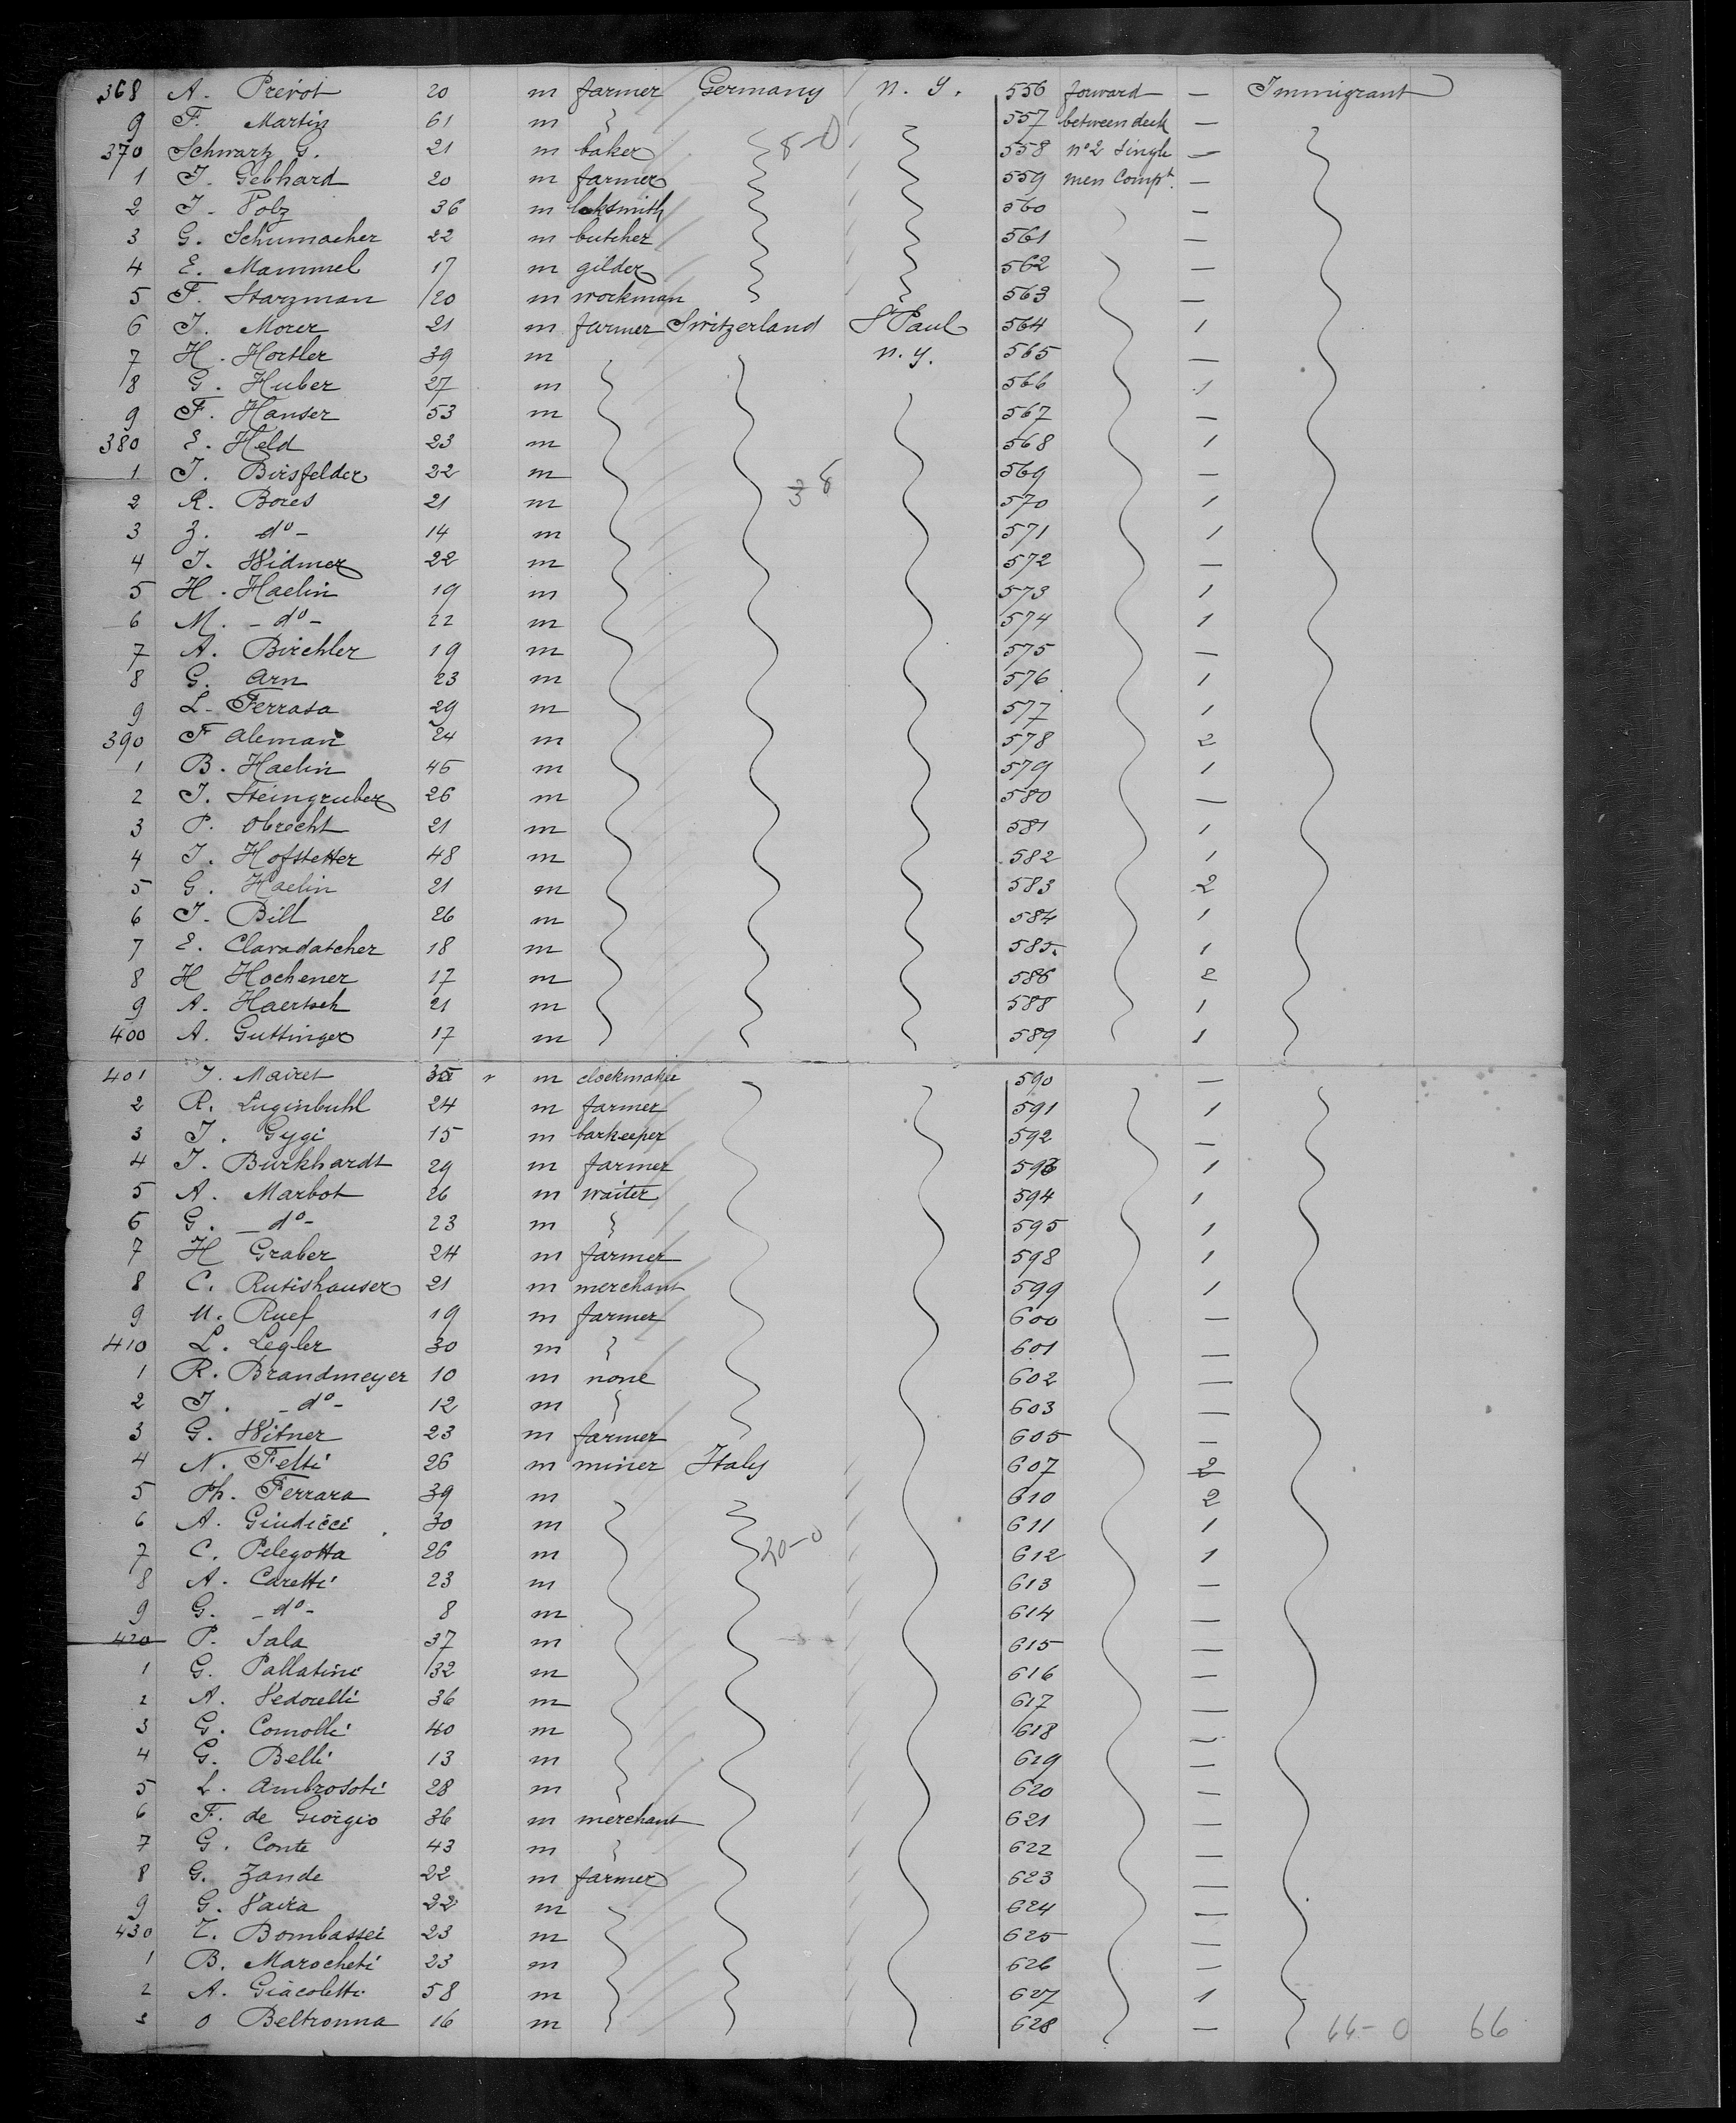 368 A. Prevot 20 m farmer Germany N. Y. 556 forward — Immigrant
9 F. Martin 61 m 557 between deck —
370 Schwartz G. 21 m baker 8-0 558 No 2 Single —
1 J. Gebhard 20 m farmer 559 men Compt. —
2 J. Volz 36 m locksmith 560 —
3 G. Schumacher 22 m butcher 561 —
4 E. Mammel 17 m gilder 562 —
5 F. Starzman 20 m workman 563 —
6 J. Morer 21 m farmer Switzerland St Paul 564 1
7 H. Hortler 39 m n. y. 565 —
8 G. Huber 27 m 566 1
9 F. Hanser 53 m 567 —
380 E. Held 23 m 568 1
1 J. Birsfelder 22 m 569 —
2 R. Bores 21 m 570 1
3 Z. do - 14 m 571 1
4 J. Widmer 22 m 572 —
5 H. Haelin 19 m 573 1
6 M. - do - 22 m 574 1
7 A. Birchler 19 m 575 —
8 G. Arn 23 m 576 1
9 L. Ferrasa 29 m 577 1
390 F Aleman 24 m 578 2
1 B. Haelin 45 m 579 1
2 J. Steingruber 26 m 580 —
3 P. Obrecht 21 m 581 1
4 J. Hofstetter 48 m 582 1
5 G. Haelin 21 m 583 2
6 J. Bill 26 m 584 1
7 E. Clavadatcher 18 m 585 1
8 H Hochener 17 m 586 2
9 A. Haertsch 21 m 588 1
400 A. Guttinger 17 m 589 1
401 J. Mairet 35 m clockmaker 590 —
2 R. Luginbuhl 24 m farmer 591 1
3 J. Gygi 15 m barkeeper 592 —
4 J. Burkhardt 29 m farmer 593 1
5 A. Marbot 26 m waiter 594 1
6 G. - do - 23 m 595 1
7 H Graber 24 m farmer 598 1
8 C. Rutishauser 21 m merchant 599 1
9 U. Ruef 19 m farmer 600 —
410 L. Legler 30 m 601 —
1 R. Brandmeyer 10 m none 602 —
2 J. - do - 12 m 603 —
3 G. Witner 23 m farmer 605 —
4 N. Felti 26 m miner Italy 607 2
5 Ph. Ferrara 39 m 610 2
6 A. Giudicci 30 m 611 1
7 C. Pelegotta 26 m 20-0 612 1
8 A. Caretti 23 m 613 —
9 G. - do - 8 m 614 —
420 P. Sala 37 m 615 —
1 G. Pallatini 32 m 616 —
2 A. Vedorelli 36 m 617 —
3 G. Comolli 40 m 618 —
4 G. Belli 13 m 619 —
5 L. Ambrosoti 28 m 620 —
6 F. de Giorgio 36 m merchant 621 —
7 G. Conte 43 m 622 —
8 G. Zande 22 m farmer 623 —
9 G. Vaira 22 m 624 —
430 T. Bombassei 23 m 625 —
1 B. Marocheti 23 m 626 —
2 A. Giacoletti 58 m 627 1
3 O Beltronna 16 m 628 — 66-0 66